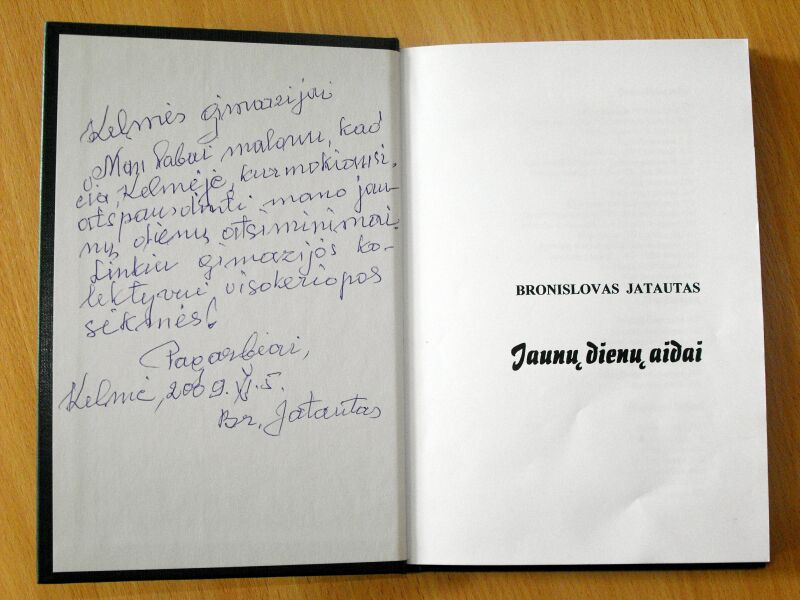 Kelmės gimnazijai
Man labai malonu, kad
čia, Kelmėje, kur mokiausi,
atspausdinti mano jau-
nų dienų atsiminimai.
Linkiu gimnazijos ko-
lektyvui visokeriopos
sėkmės!
Pagarbiai,
Kelmė, 2009.XI.5.
Br. Jatautas
BRONISLOVAS JATAUTAS
Jaunų dienų aidai